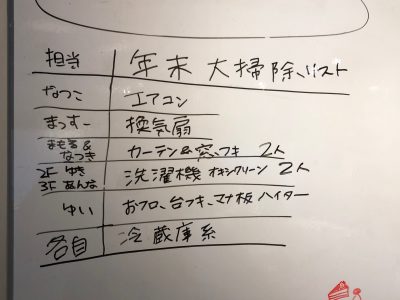 担当 年末 大掃除リスト
なつこ エアコン
まっすー 換気扇
まもる& なつき カーテン&窓フキ 2人
2F ゆき 3F あんな 洗濯機 オキシクリーン 2人
ゆい おフロ、台フキ、マナ板 ハイター
各自 冷蔵庫系